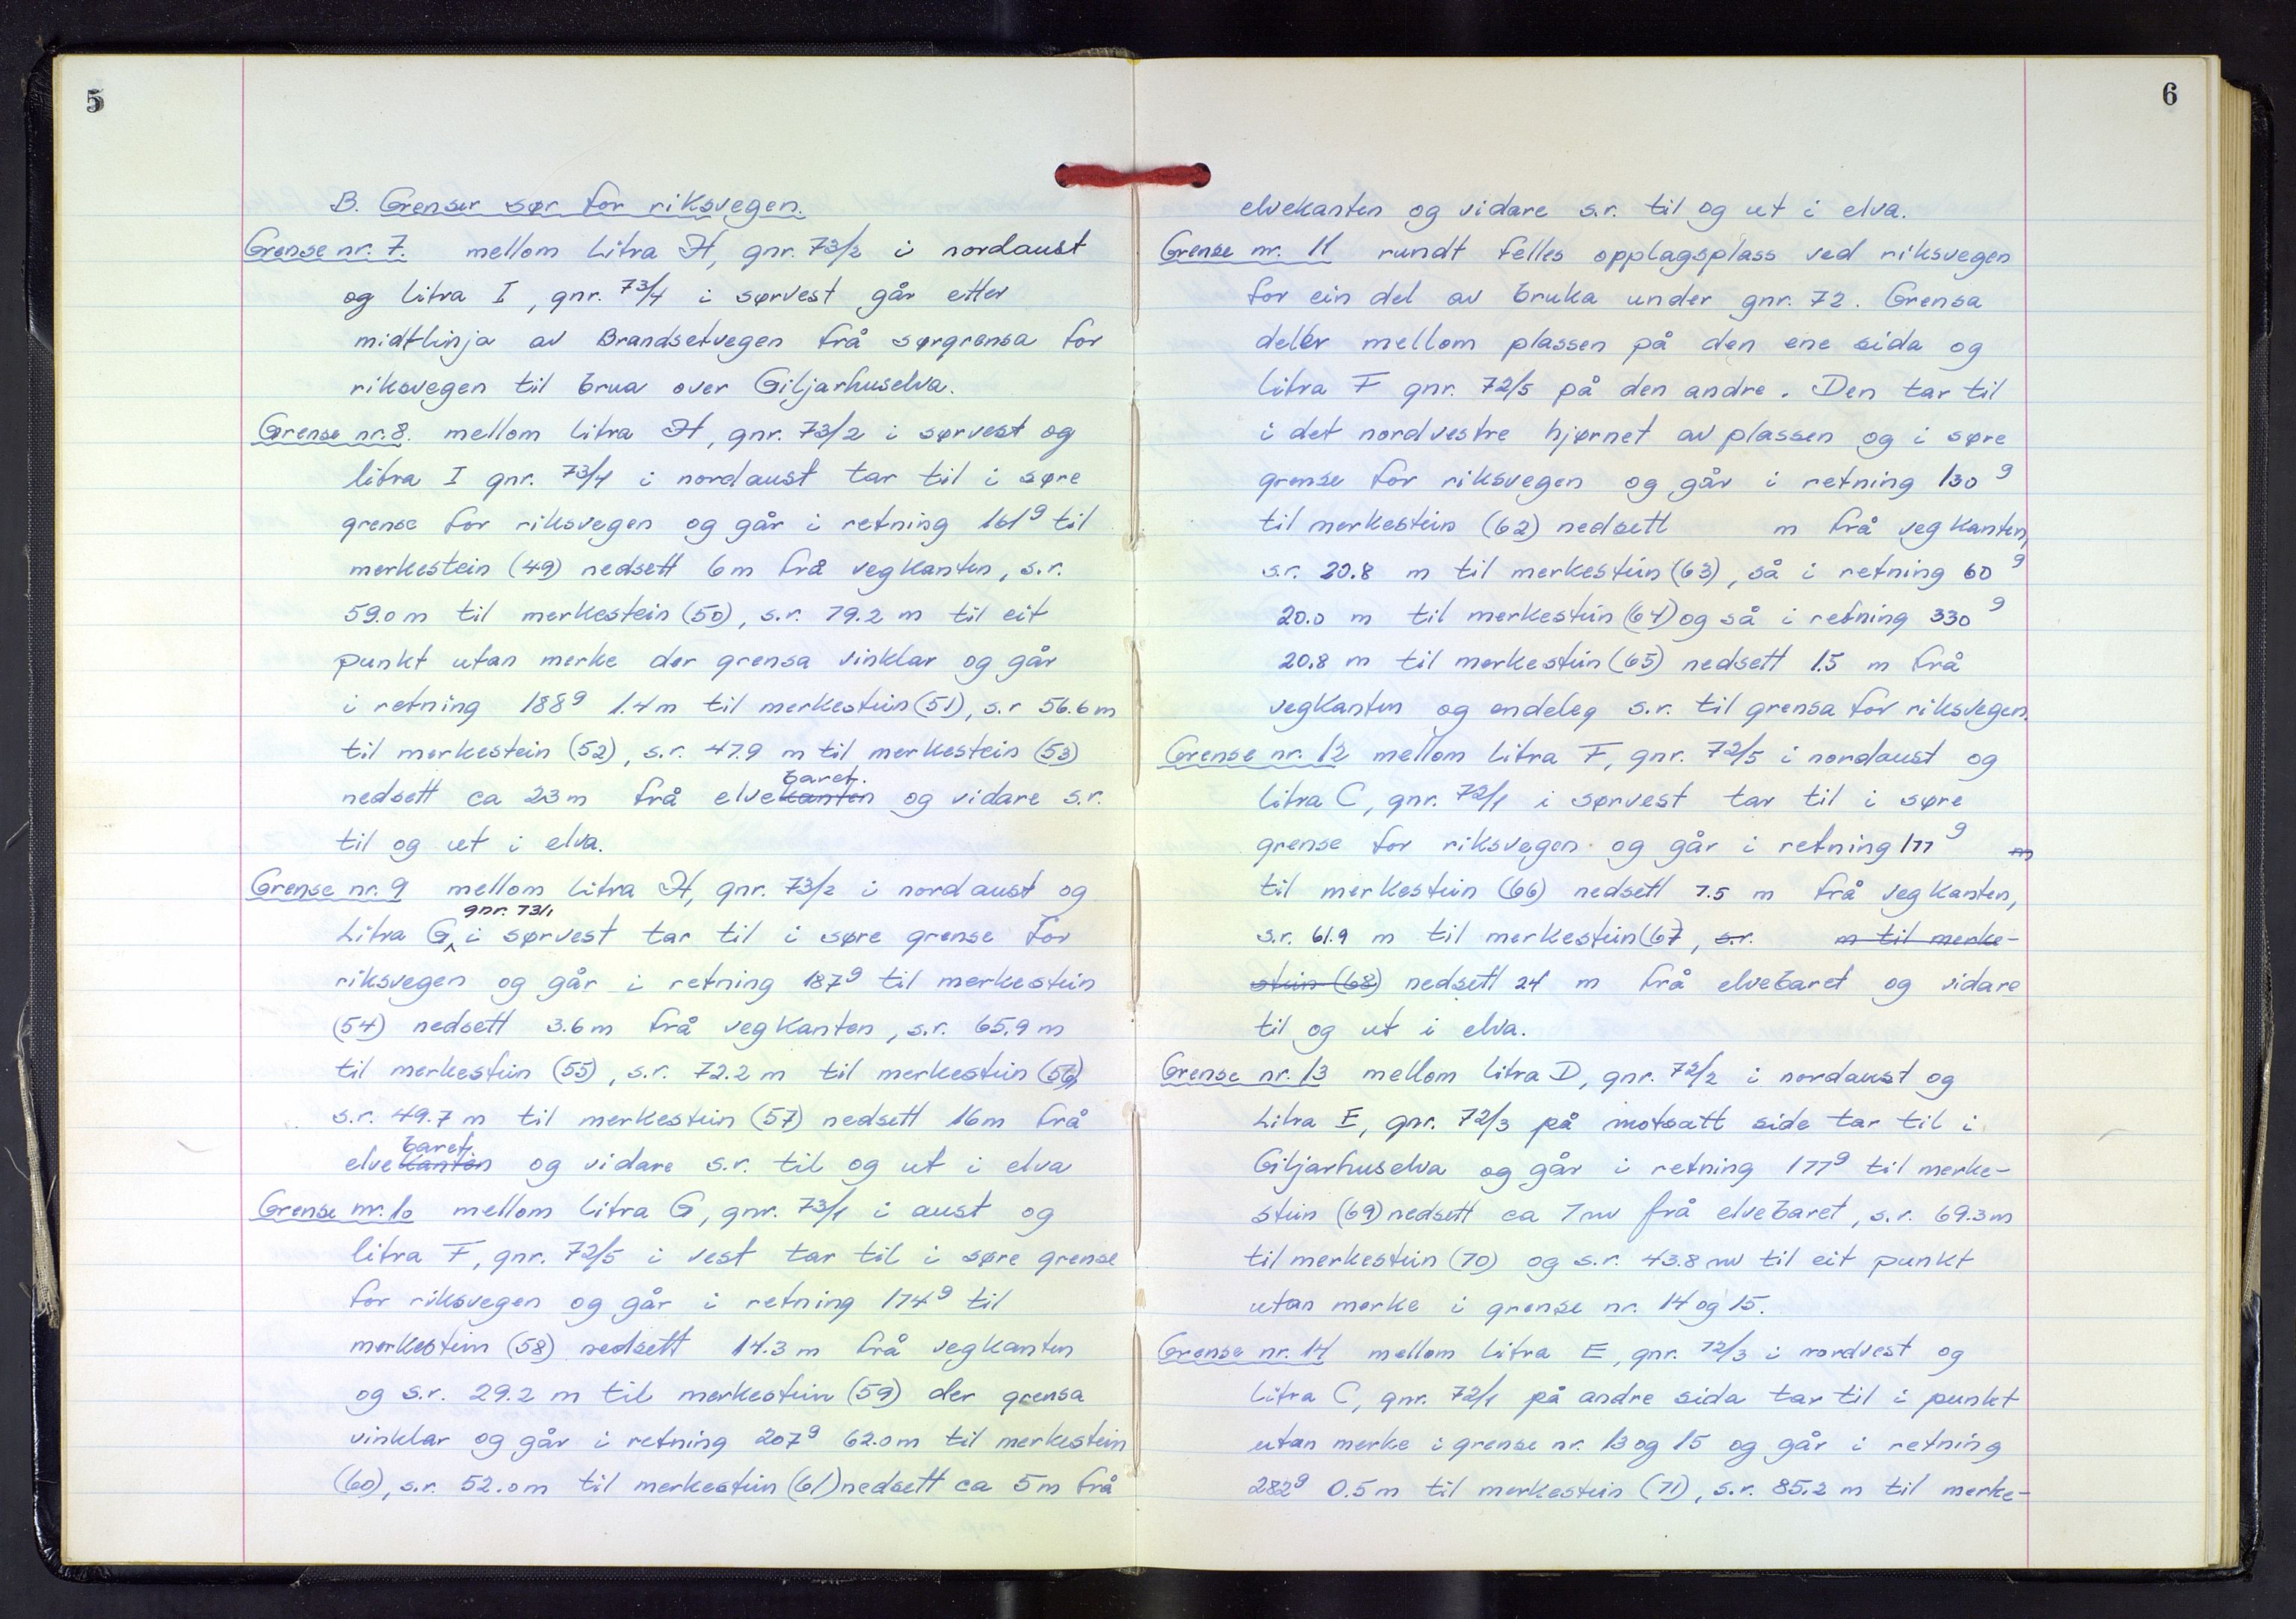 5
B. Grenser sør for riksvegen.
Grense nr. 7. mellom Litra H, gnr. 73/2 i nordaust
og litra I, gnr. 73/4 i sørvest går etter
midtlinja av Brandsetvegen frå sørgrensa for
riksvegen til brua over Giljarhuselva.
Grense nr. 8. mellom litra H, gnr. 73/2 i sørvest og
litra I gnr. 73/4 i nordaust tar til i søre
grense for riksvegen og går i retning 161g til
merkestein (49) nedsett 6m frå vegkanten, s.r.
59.0m til merkestein (50), s.r. 79.2 m til eit
punkt utan merke der grensa vinklar og går
i retning 188g 1.4m til merkestein (51), s.r 56.6m
til merkestein (52), s.r. 47.9 m til merkestein (53)
baret.
nedsett ca 23m frå elvekanten og vidare s.r.
til og ut i elva.
Grense nr. 9 mellom litra H, gnr. 73/2 i nordaust og
gnr. 73/1
Litra G, i sørvest tar til i søre grense for
riksvegen og går i retning 187g til merkestein
(54) nedsett 3.6m frå vegkanten, s.r. 65.9m
til merkestein (55), s.r. 72.2m til merkestein (56)
s.r. 49.7 m til merkestein (57) nedsett 16m frå
baret.
elvekanten og vidare s.r. til og ut i elva
Grense nr. 10 mellom litra G, gnr. 73/1 i aust og
litra F, gnr. 72/5 i vest tar til i søre grense
for riksvegen og går i retning 174g til
merkestein (58) nedsett 14.3m frå vegkanten
og s.r. 29.2 m til merkestein (59) der grensa
vinklar og går i retning 207g 62.0m til merkestein
(60), s.r. 52.0m til merkestein (61) nedsett ca 5m frå
6
elvekanten og vidare s.r. til og ut i elva.
Grense nr. 11 rundt felles opplagsplass ved riksvegen
for ein del av bruka under gnr. 72. Grensa
deler mellom plassen på den ene sida og
litra F gnr. 72/5 på den andre. Den tar til
i det nordvestre hjørnet av plassen og i søre
grense for riksvegen og går i retning 130g
til merkestein (62) nedsett m frå vegkanten,
s.r. 20.8 m til merkestein (63), så i retning 60g
20.0 m til merkestein (64) og så i retning 330g
20.8 m til merkestein (65) nedsett 1.5 m frå
vegkanten og endeleg s.r. til grensa for riksvegen.
Grense nr. 12 mellom litra F, gnr. 72/5 i nordaust og
litra C, gnr. 72/1 i sørvest tar til i søre
grense for riksvegen og går i retning 177g m
til merkestein (66) nedsett 7.5 m frå vegkanten,
s.r. 61.9 m til merkestein (67, s.r. m til merke-
stein (68) nedsett 24 m frå elvebaret og vidare
til og ut i elva.
Grense nr. 13 mellom litra D, gnr. 72/2 i nordaust og
Litra E, gnr. 72/3 på motsatt side tar til i
Giljarhuselva og går i retning 177g til merke-
stein (69) nedsett ca 7m frå elvebaret, s.r. 69.3m
til merkestein (70) og s.r. 43.8m til eit punkt
utan merke i grense nr. 14 og 15.
Grense nr. 14 mellom litra E, gnr. 72/3 i nordvest og
litra C, gnr. 72/1 på andre sida tar til i punkt
utan merke i grense nr. 13 og 15 og går i retning
282g 0.5m til merkestein (71), s.r. 85.2 m til merke-